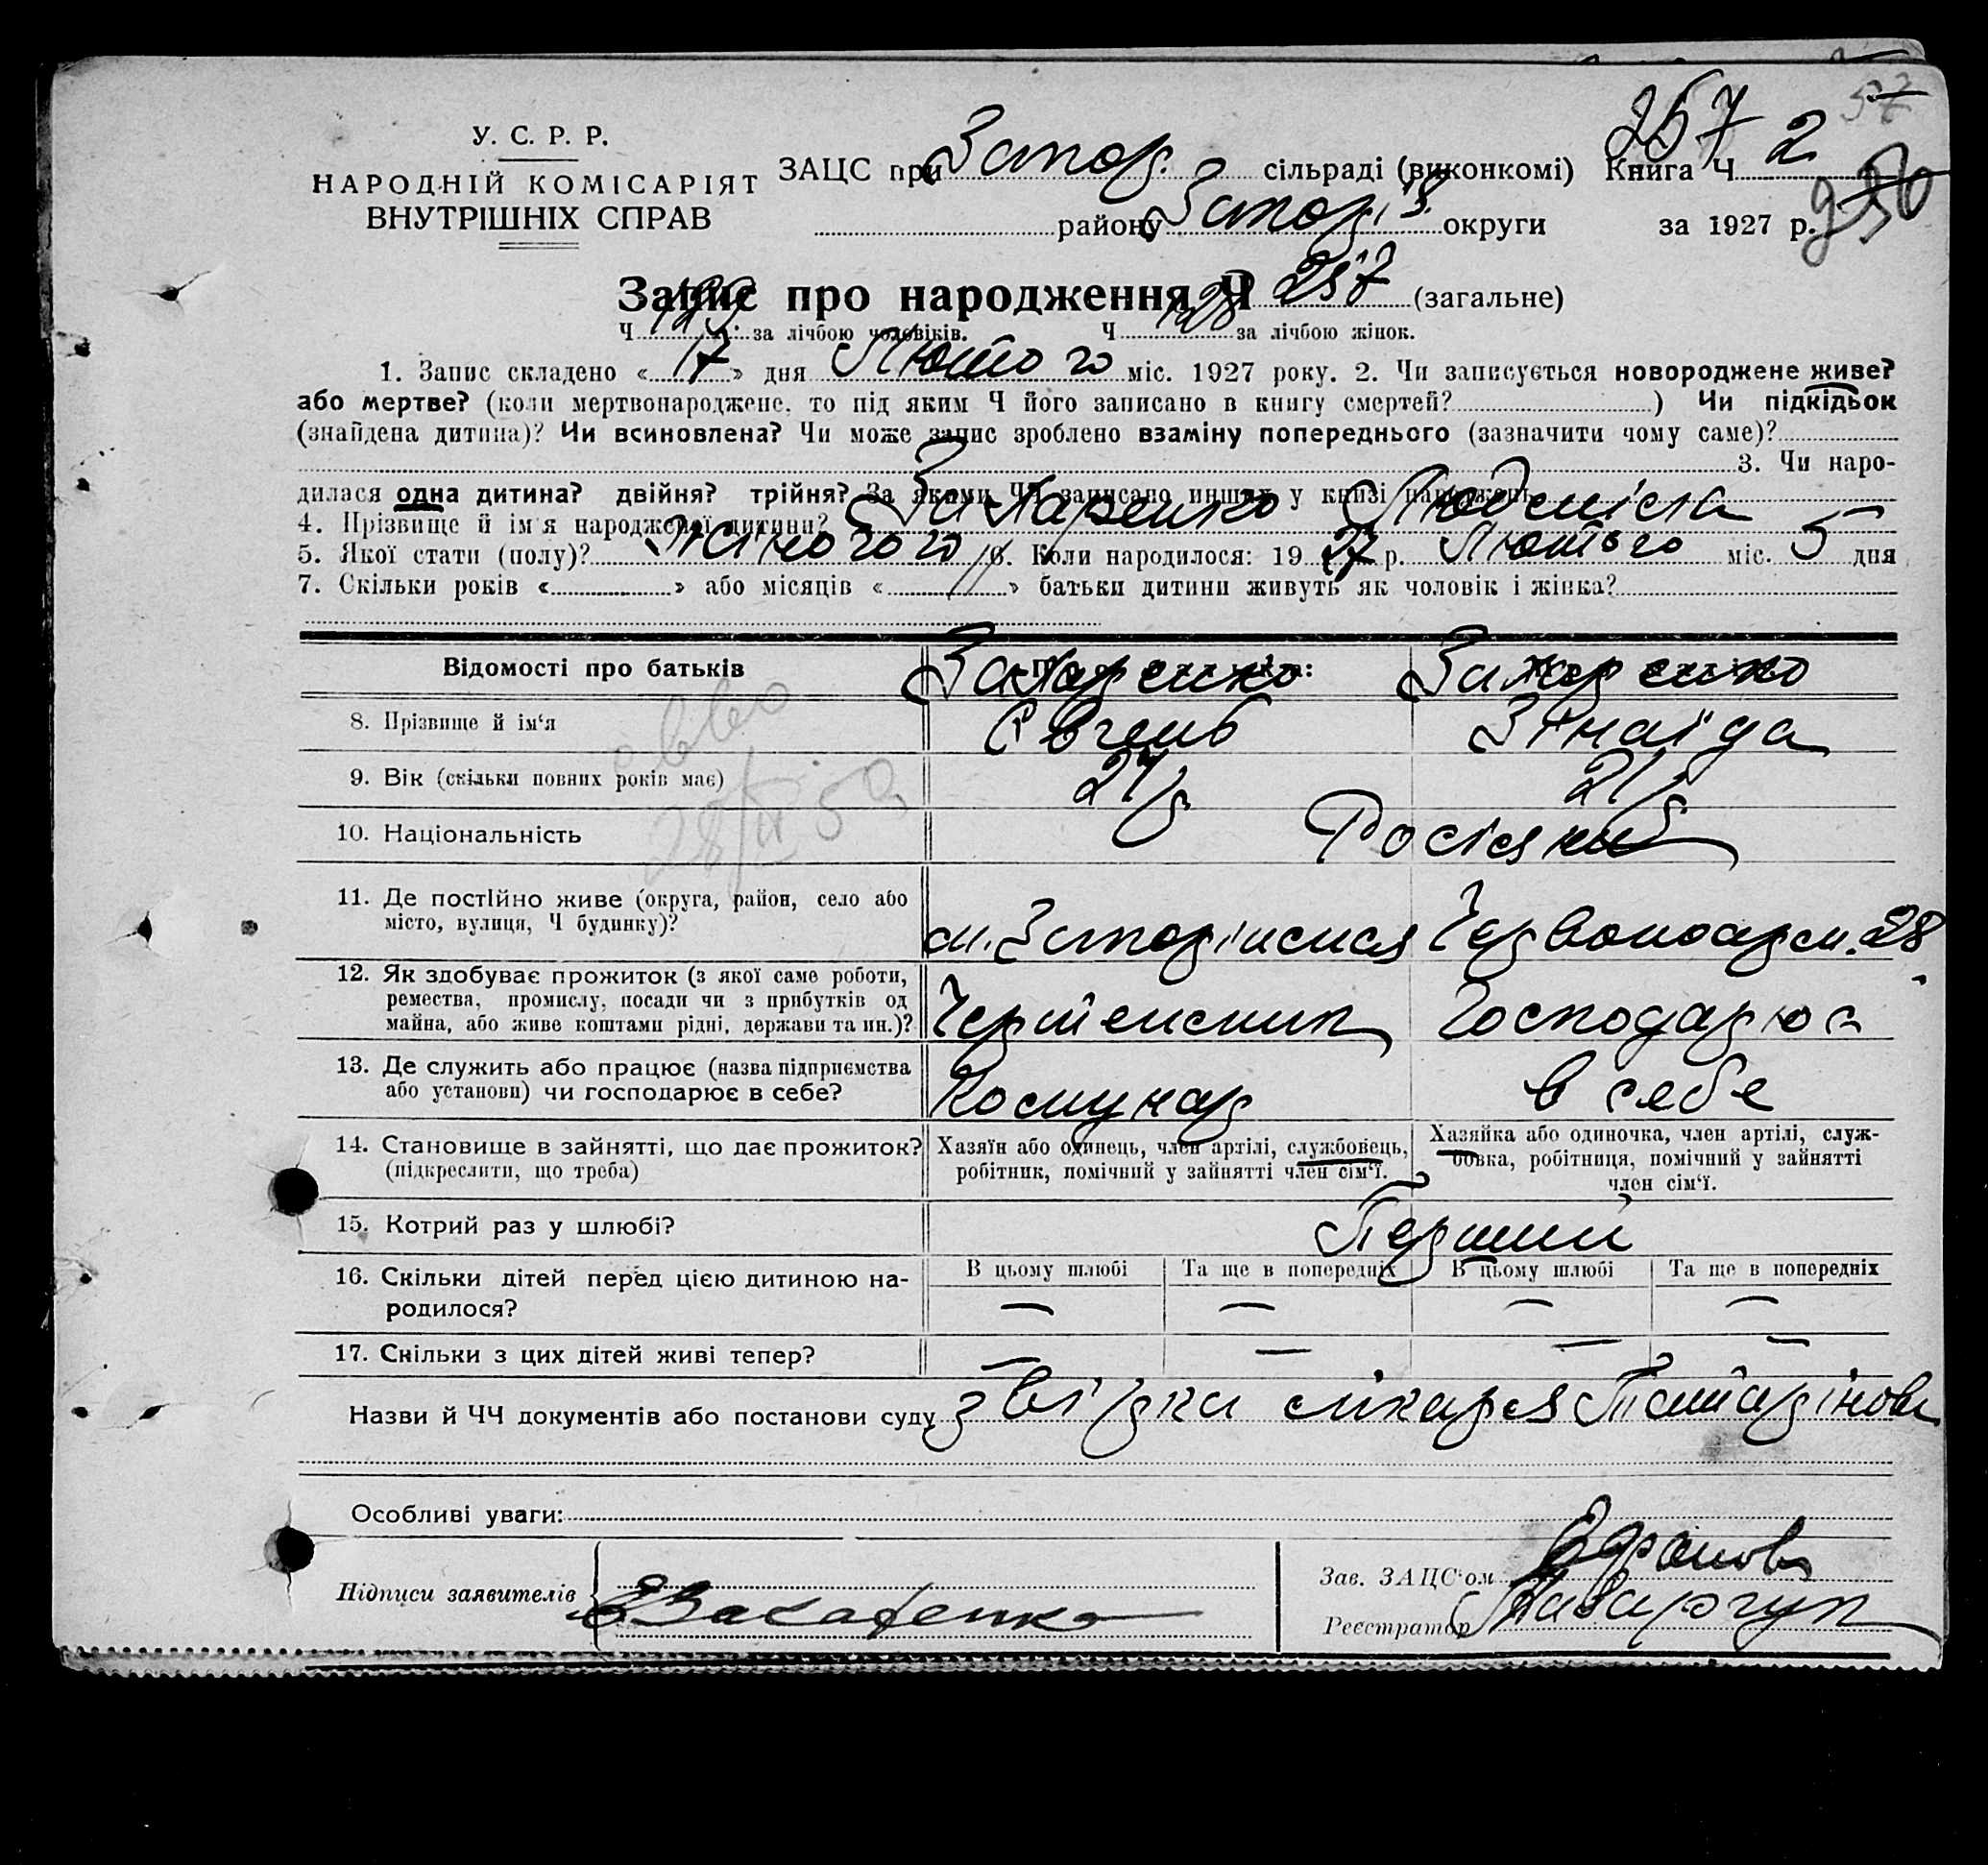 57
257
У. С. Р. Р.
НАРОДНІЙ КОМІСАРІЯТ
ВНУТРІШНІХ СПРАВ
ЗАЦС при Запор. сільраді (виконкомі) Книга Ч 2
району Запоріз. округи за 1927 р.
Запис про народження Ч 257 (загальне)
Ч 129 за лічбою чоловіків. Ч 128 за лічбою жінок.
1. Запис складено «17» дня Лютого міс. 1927 року. 2. Чи записується новороджене живе?
або мертве? (коли мертвонароджене, то під яким Ч його записано в книгу смертей? ) Чи підкідьок
(знайдена дитина)? Чи всиновлена? Чи може запис зроблено взаміну попереднього (зазначити чому саме)?
3. Чи наро-
дилася одна дитина? двійня? трійня? За якими ЧЧ записано инших у книзі народжень
4. Прізвище й ім'я народженої дитини? Захаренко Людміла
5. Якої стати (полу)? Жіночого 6. Коли народилося: 1927 р. Лютого міс. 5 дня
7. Скільки років « » або місяців « » батьки дитини живуть як чоловік і жінка?
Відомості про батьків Захаренко Захаренко
8. Прізвище й ім‘я Євгень Зінаїда
9. Вік (скільки повних років має) 24 21
10. Національність Росіяни
11. Де постійно живе (округа, район, село або
місто, вулиця, Ч будинку)? м. Запоріжжя Червоноарм. 28
12. Як здобуває прожиток (з якої саме роботи,
ремества, промислу, посади чи з прибутків од
майна, або живе коштами рідні, держави та ин.)? Чертежник Господарює
13. Де служить або працює (назва підприємства
або установи) чи господарює в себе? Комунар в себе
14. Становище в зайнятті, що дає прожиток?
(підкреслити, що треба)
Хазяїн або одинець, член артілі, службовець,
робітник, помічний у зайнятті член сім‘ї.
Хазяйка або одиночка, член артілі, служ-
бовка, робітниця, помічний у зайнятті
член сім‘ї.
15. Котрий раз у шлюбі? Перший
16. Скільки дітей перед цією дитиною на-
родилося?
В цьому шлюбі — Та ще в попередніх — В цьому шлюбі — Та ще в попередніх —
17. Скільки з цих дітей живі тепер? — — — —
Назви й ЧЧ документів або постанови суду звідка лікаря
Особливі уваги:
Підписи заявителів ЕЗахаренко
Зав. ЗАЦС‘ом
Реєстратор